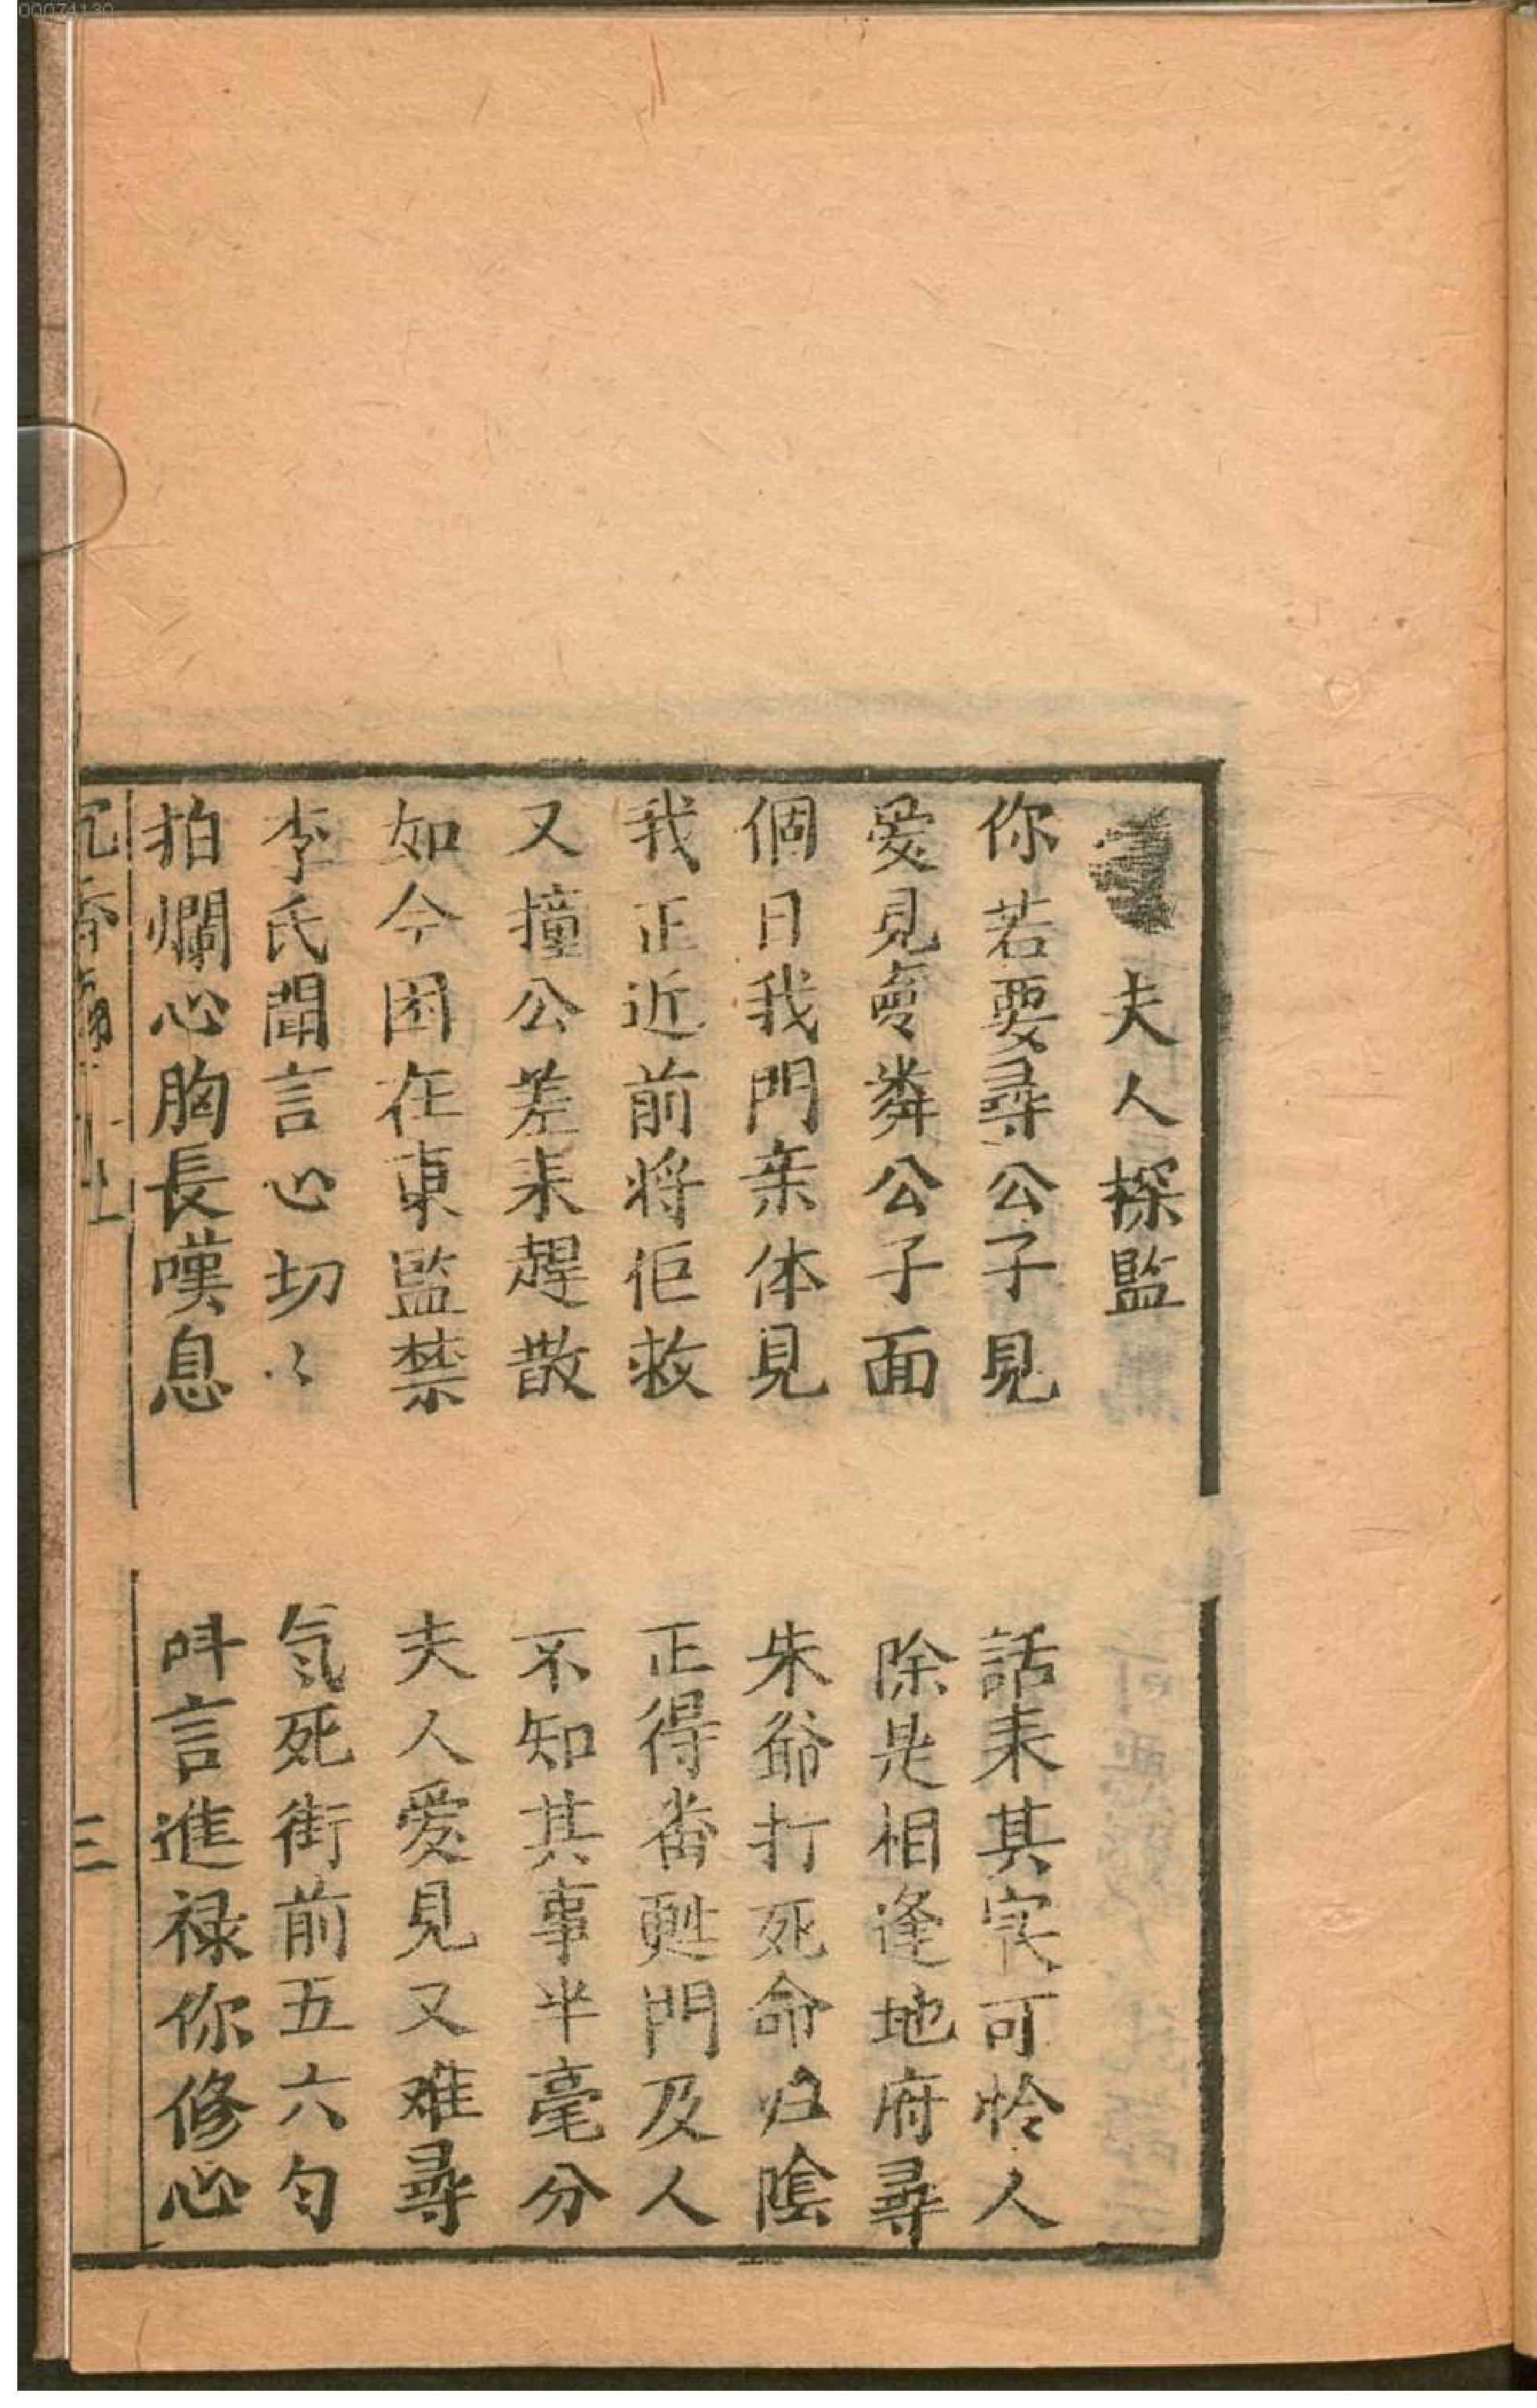 夫人探監
你若要尋公子見　話耒其宲可怜人
爱見㑹粦公子面　除是相逢地府尋
個日我門亲体見　朱爺打死命归陰
我正近前将佢救　正得畨甦門及人
又撞公差耒趕散　不知其事半毫分
如今困在東監禁　夫人爱見又难尋
李氏聞言心切〻　氣死街前五六匀
拍爛心胸長嘆息　呌言進禄你修心
三
00074139